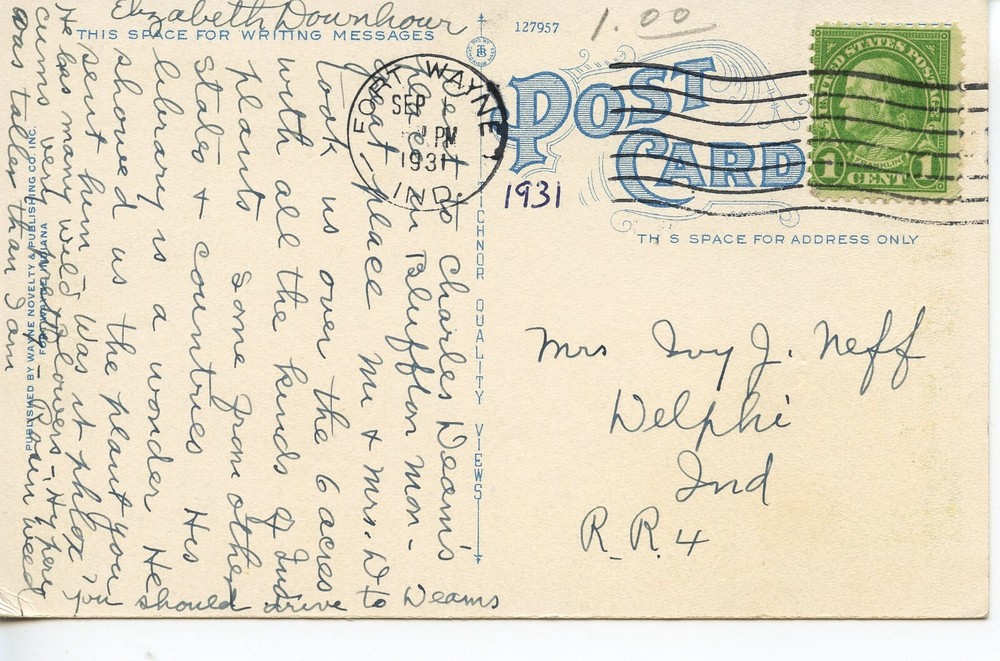 Elizabeth Downhour
THIS SPACE FOR WRITING MESSAGES
Went to Charles Deam's
place in Bluffton Mon-
Great place Mr & Mrs. D
took us over the 6 acres
with all the kinds of Ind
plants some from other
States & countries His
library is a wonder He
showed us the plant you
sent him Was it phlox?
He has many wild flowers - Hypericums very pretty - Rosin weed
was taller than I am
you should drive to Deams
PUBLISHED BY WAYNE NOVELTY & PUBLISHING CO. INC.
FORT WAYNE, INDIANA
TICHNOR QUALITY VIEWS
127957
1.00
POST CARD
FORT WAYNE
SEP 1
PM
1931
IND.
1931
UNITED STATES POSTAGE
FRANKLIN
1 CENT 1
TH S SPACE FOR ADDRESS ONLY
Mrs Ivy J. Neff
Delphi
Ind
R.R. 4